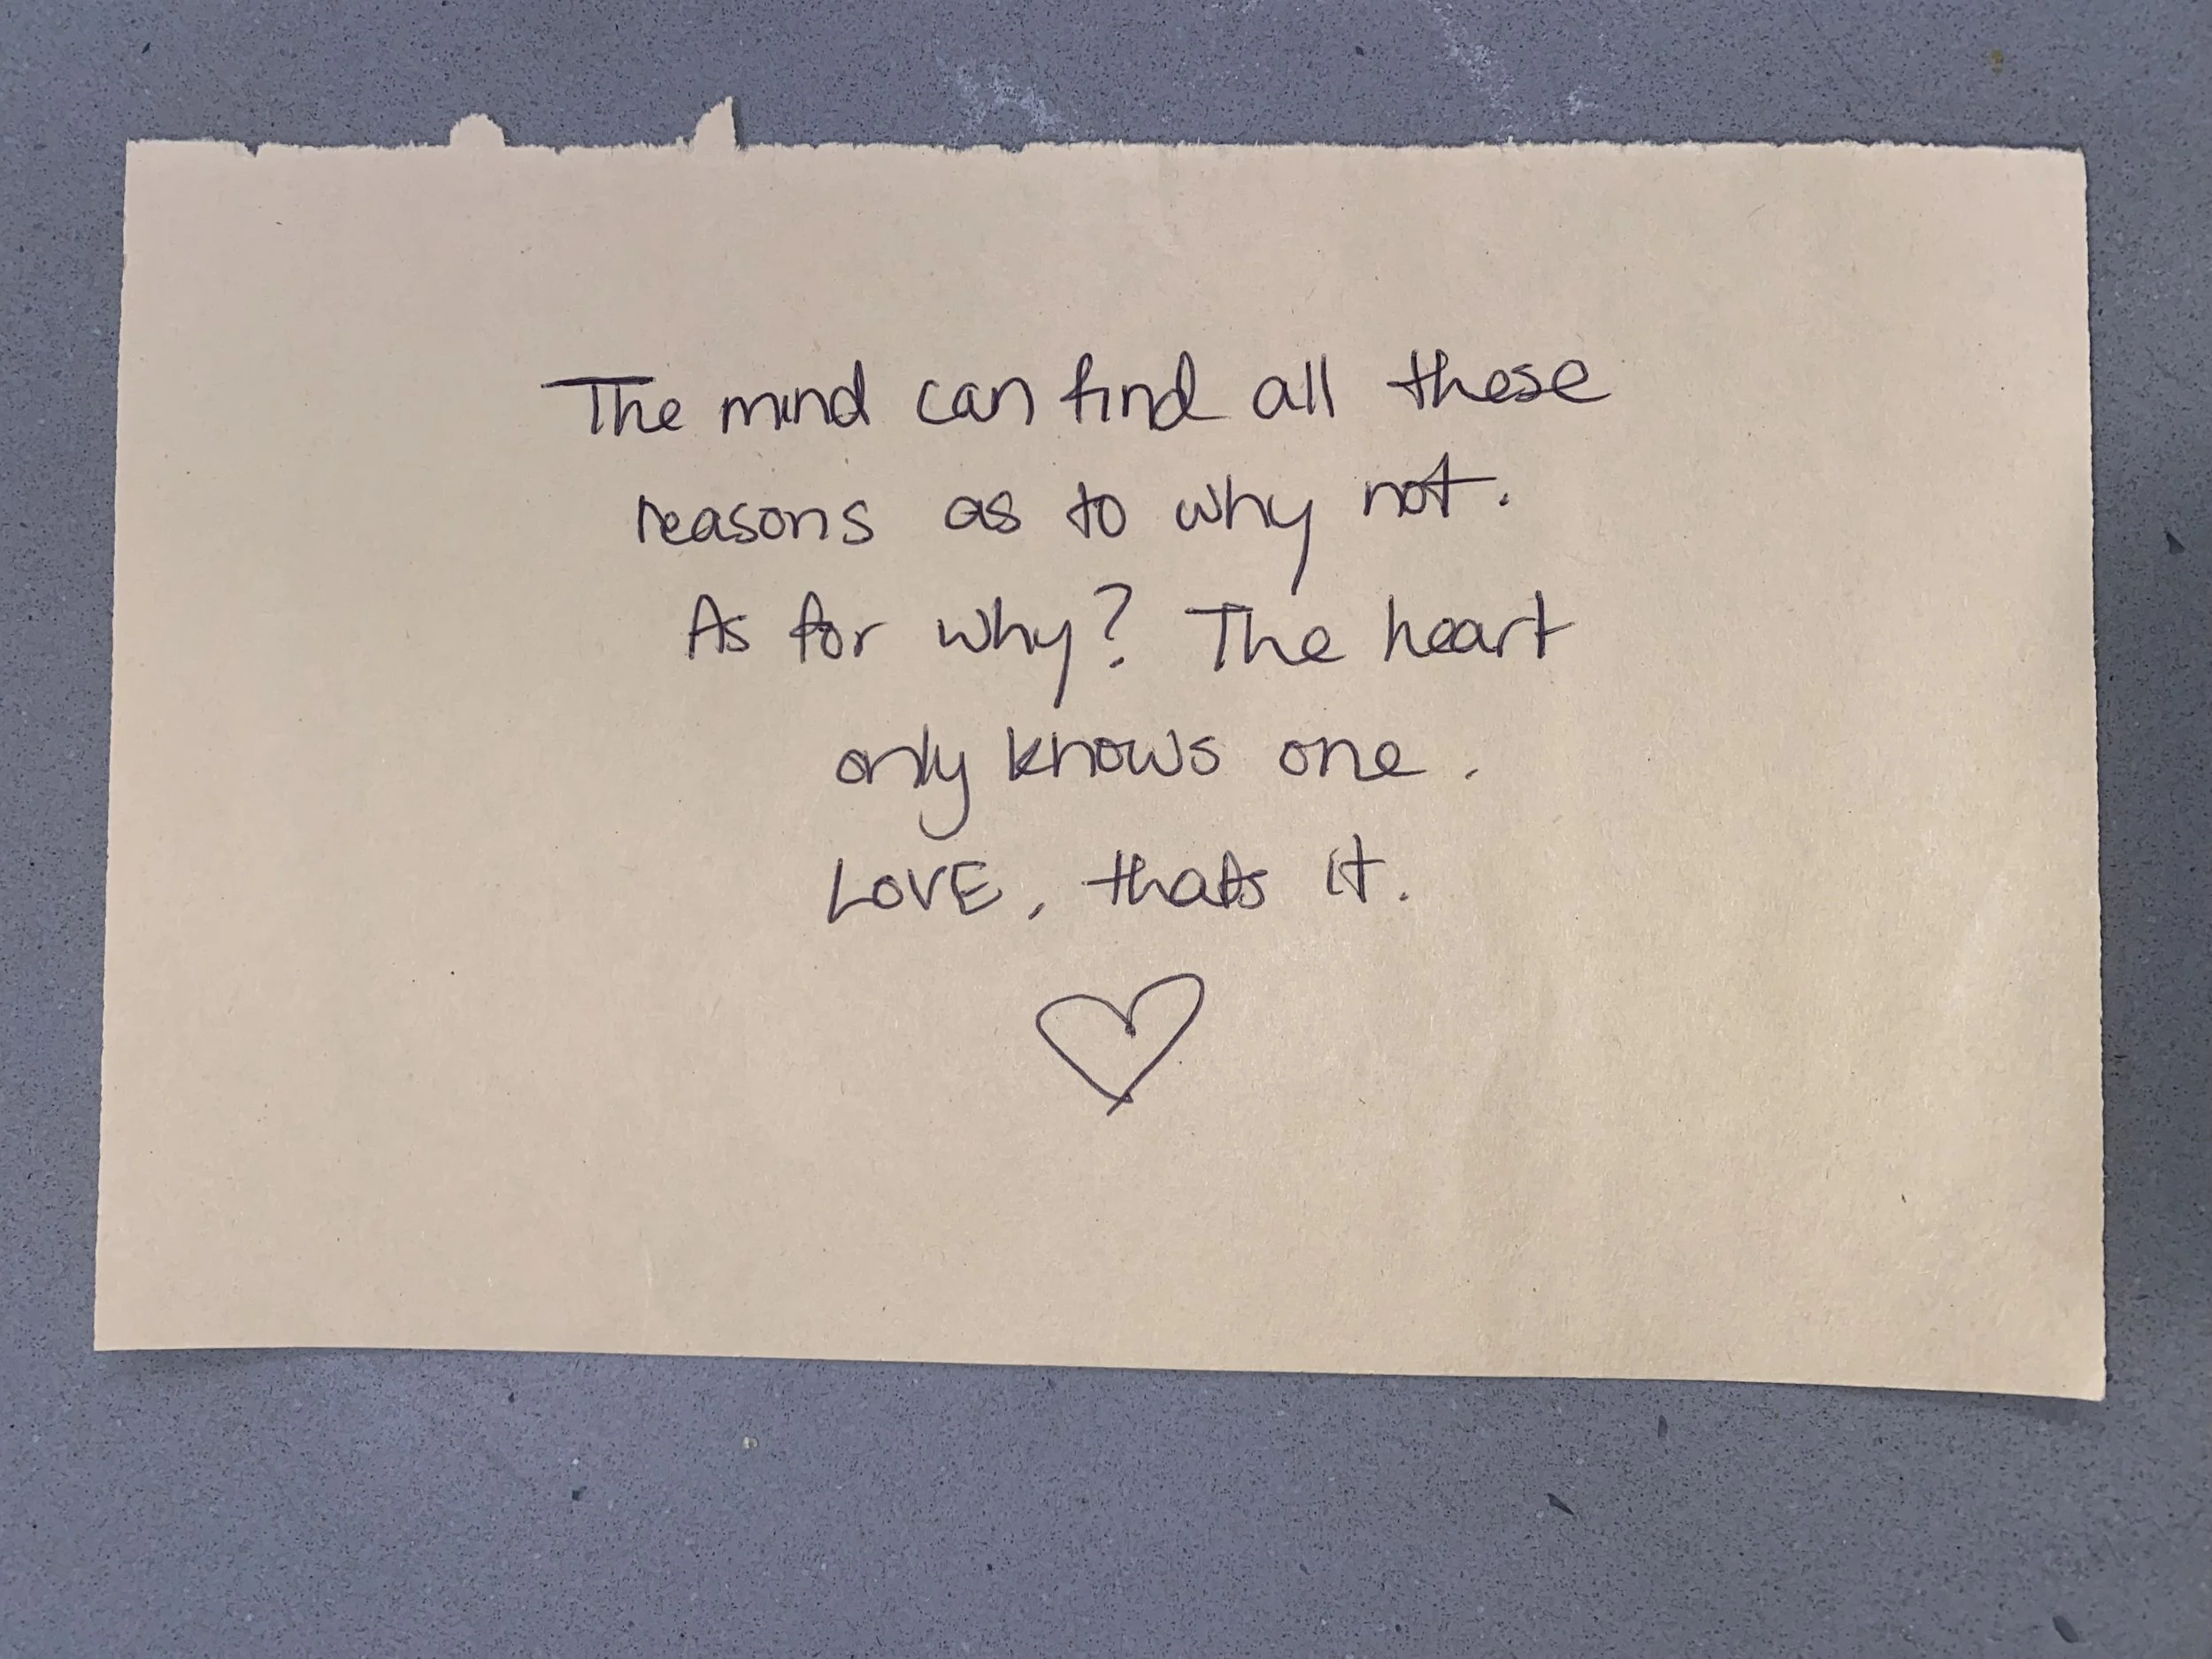 The mind can find all these
reasons as to why not.
As for why? The heart
only knows one.
LOVE, thats it.